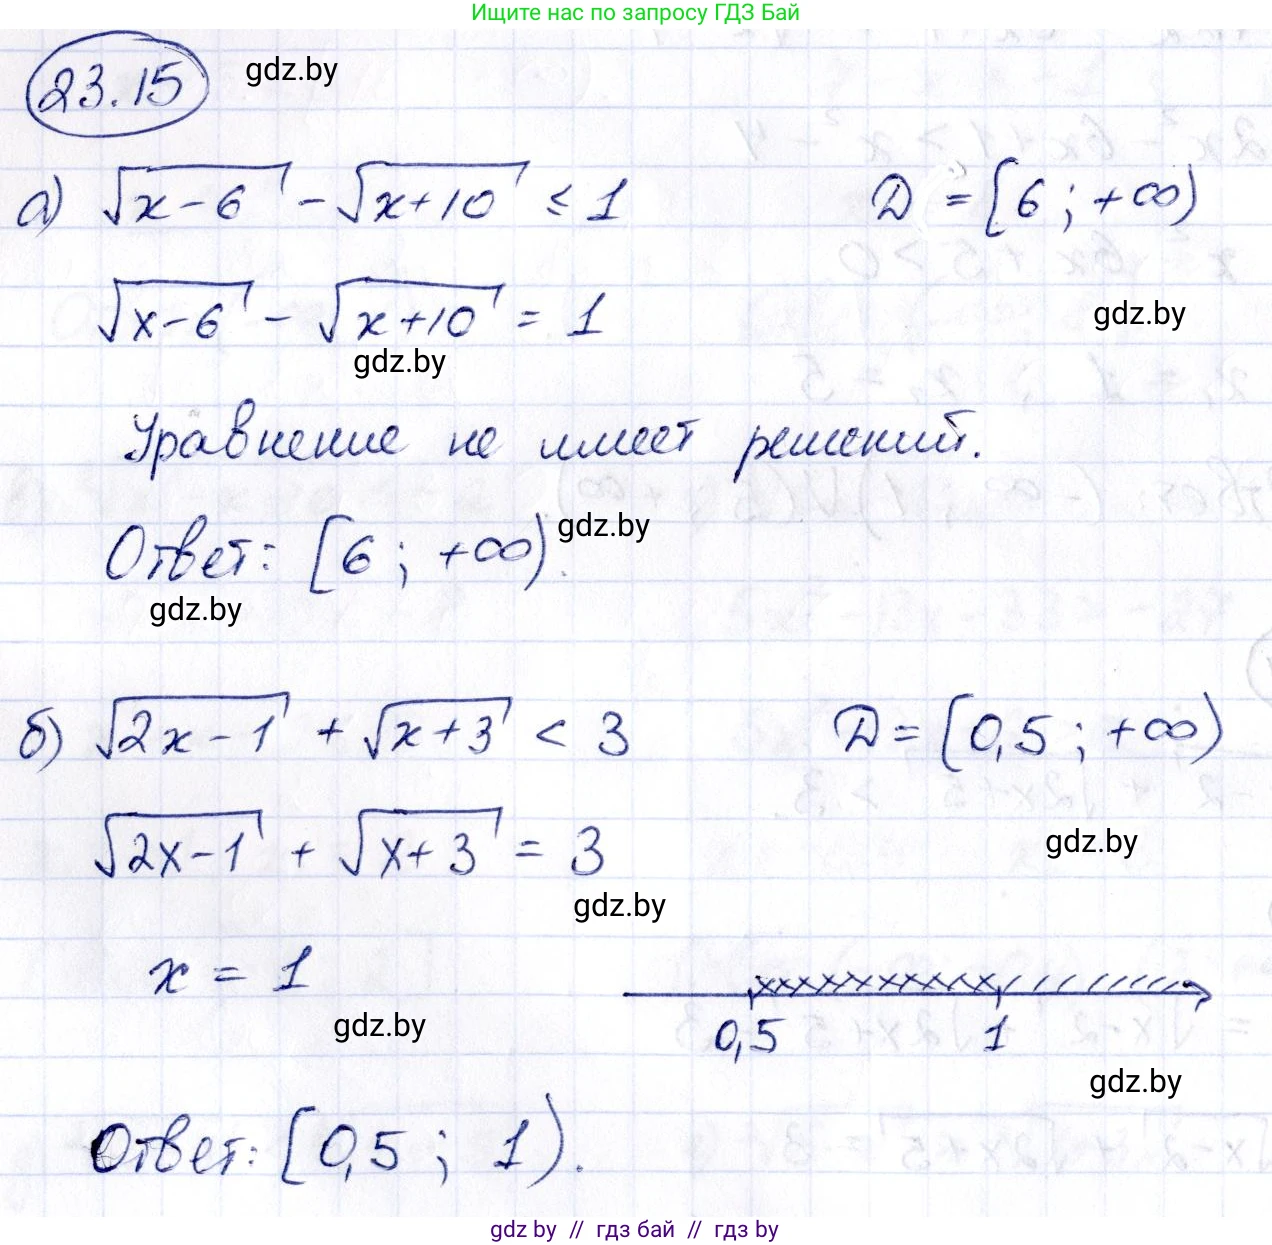 Ищите нас по запросу ГДЗ Бай
23.15 gdz.by
а) √(x-6) - √(x+10) ≤ 1 D = [6; +∞)
√(x-6) - √(x+10) = 1 gdz.by
gdz.by
Уравнение не имеет решений.
Ответ: [6; +∞). gdz.by
gdz.by
б) √(2x-1) + √(x+3) < 3 D = [0,5; +∞)
√(2x-1) + √(x+3) = 3 gdz.by
gdz.by
x = 1
gdz.by 0,5 1
gdz.by
Ответ: [0,5; 1).
gdz by // гдз бай // gdz by